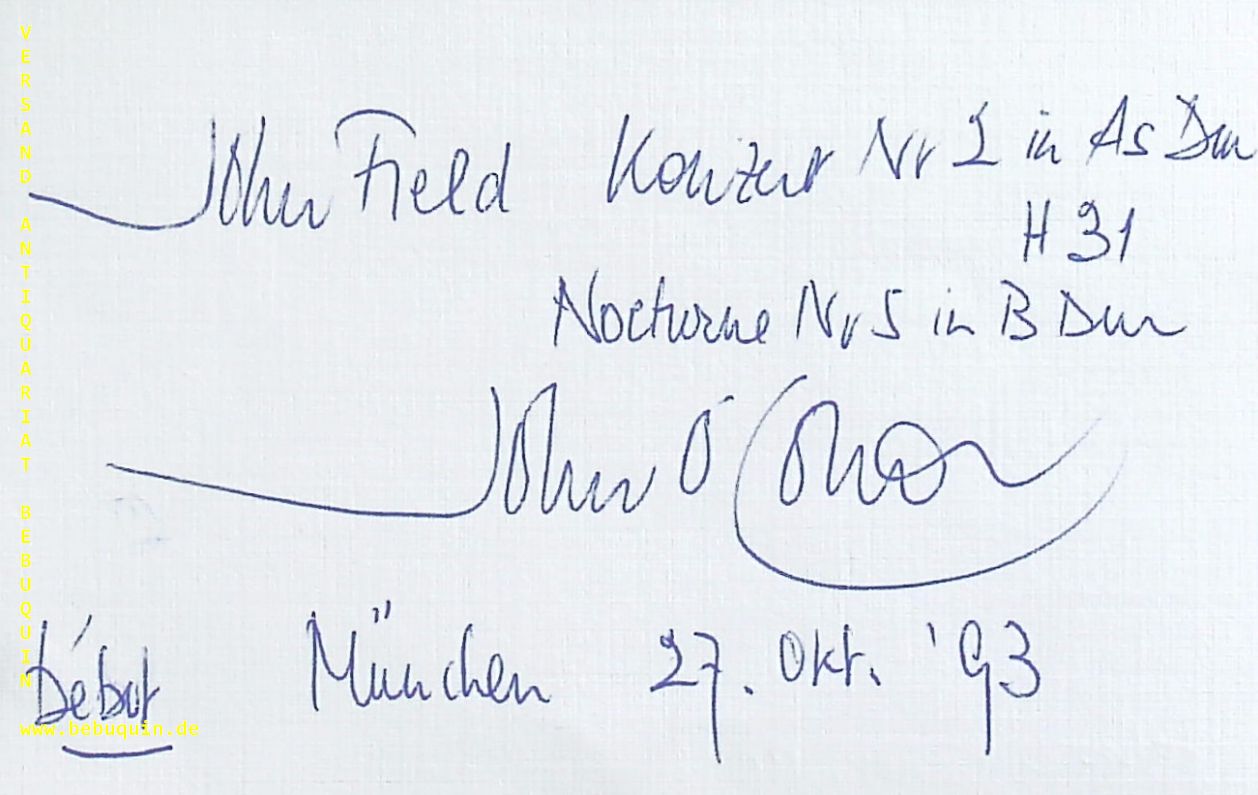 John Field Konzert Nr 2 in As Dur
H 31
Nocturne Nr 5 in B Dur
John O'Conor
Début München 27. Okt. '93
VERSAND ANTIQUARIAT BEBUQUIN
www.bebuquin.de